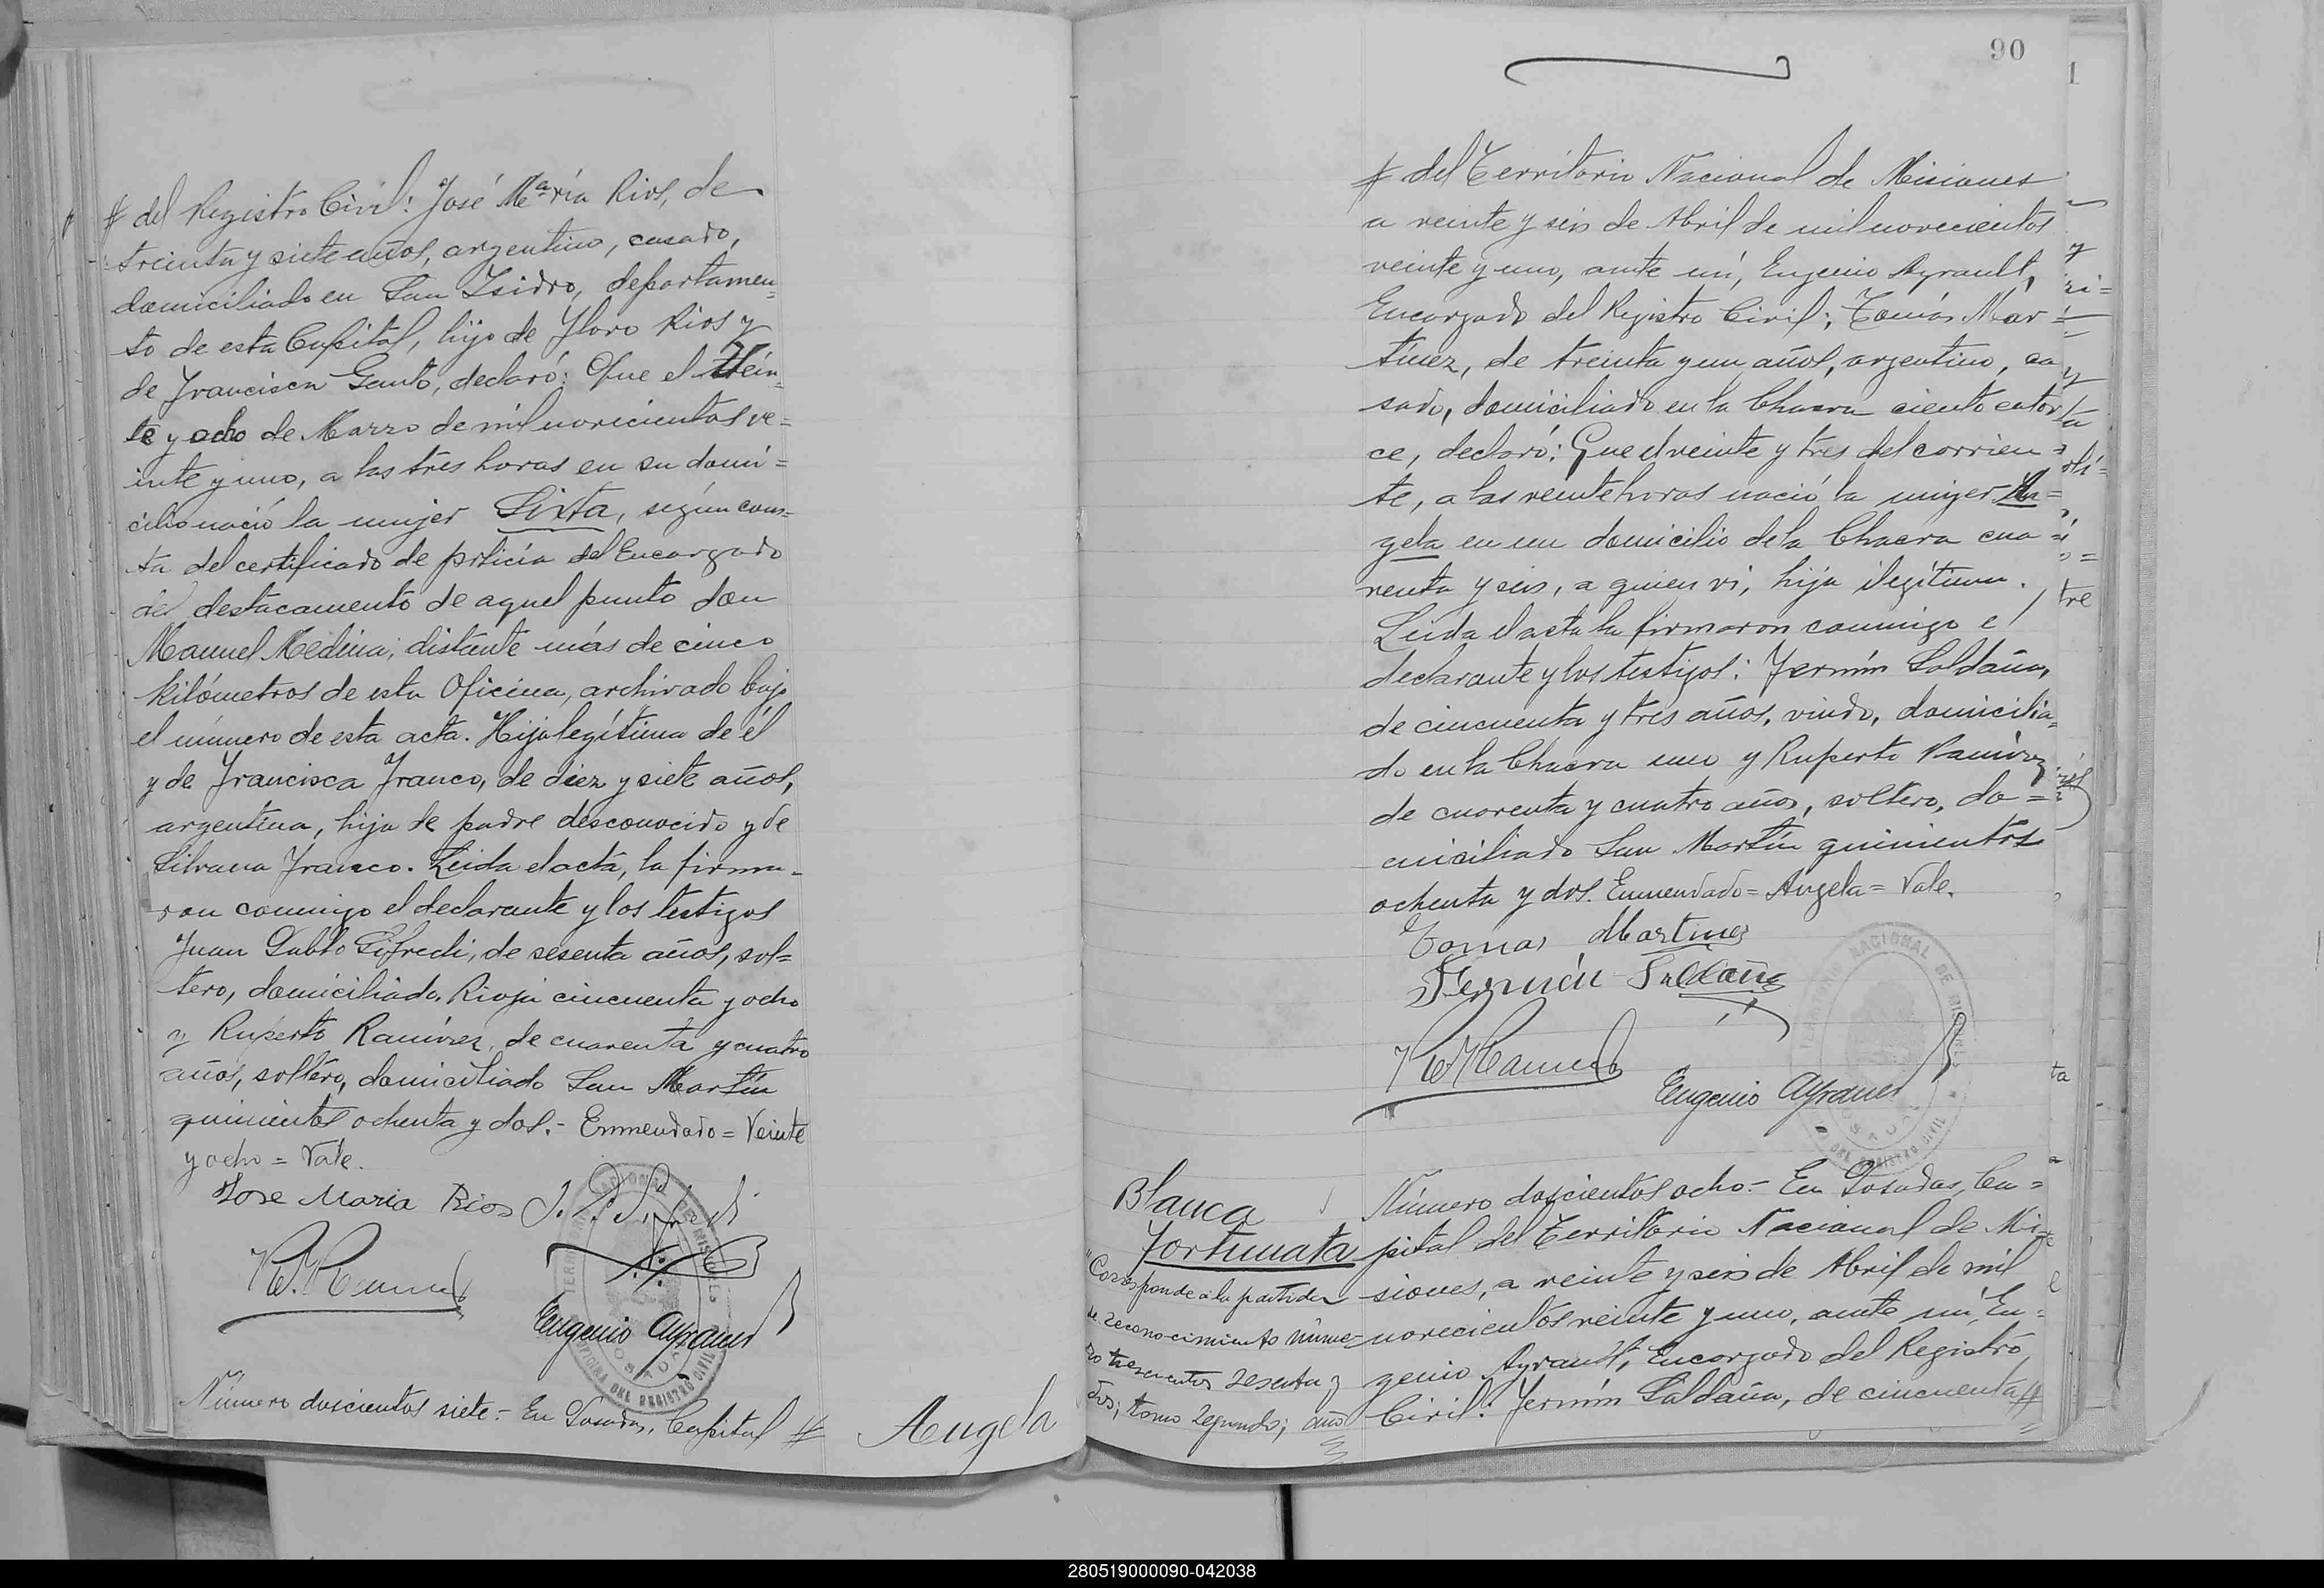 # del Registro Civil: José Mªría Rios, de
treinta y siete años, argentino, casado,
domiciliado en San Isidro, departamen=
to de esta Capital, hijo de Floro Rios y
de Francisca Gauto, declaró: Que el vein=
te y ocho de Marzo de mil novecientos ve=
inte y uno, a las tres horas en su domi=
cilio nació la mujer Sixta, según cons=
ta del certificado de policía del Encargado
del destacamento de aquel punto don
Manuel Medina; distante más de cinco
kilómetros de esta Oficina, archivado bajo
el número de esta acta. Hija legítima de él
y de Francisca Franco, de diez y siete años,
argentina, hija de padre desconocido y de
Silvana Franco. Leida el acta, la firma-
ron conmigo el declarante y los testigos
Juan Pablo Sifredi, de sesenta años, sol=
tero, domiciliado, Rioja cincuenta y ocho
y Ruperto Ramírez, de cuarenta y cuatro
años, soltero, domiciliado San Martín
quinientos ochenta y dos.- Enmendado = Veinte
y ocho = Vale.
Jose Maria Rios J. P. Sifredi
Eugenio Ayrault
Número doscientos siete.- En Posadas, Capital #
Angela
90
# del Territorio Nacional de Misiones
a veinte y seis de Abril de mil novecientos
veinte y uno, ante mí, Eugenio Ayrault,
Encargado del Registro Civil; Tomás Mar=
tínez, de treinta y un años, argentino, ca
sado, domiciliado en la Chacra ciento cator
ce, declaró: Que el veinte y tres del corrien=
te, a las veinte horas nació la mujer An=
gela en un domicilio de la Chacra cua=
renta y seis, a quien vi, hija ilegítima.
Leida el acta la firmaron conmigo el
declarante y los testigos: Fermín Saldaña,
de cincuenta y tres años, viudo, domicilia=
do en la Chacra uno y Ruperto Ramírez
de cuarenta y cuatro años, soltero, do=
miciliado San Martín quinientos
ochenta y dos. Enmendado = Angela = Vale.
Tomas Martinez
Fermín Saldaña
Eugenio Ayrault
Blanca
Fortunata
"Corresponde a la partida
de reconocimiento núme=
ro trescientos sesenta y
dos; tomo segundo; año
Número doscientos ocho.- En Posadas, Ca=
pital del Territorio Nacional de Mi=
siones, a veinte y seis de Abril de mil
novecientos veinte y uno, ante mí, Eu=
genio Ayrault, Encargado del Registro
Civil: Fermín Saldaña, de cincuenta #
280519000090-042038